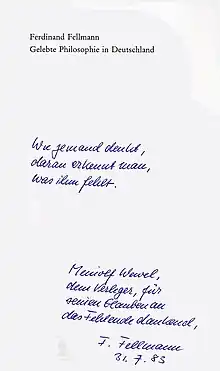 Ferdinand Fellmann
Gelebte Philosophie in Deutschland
Wie jemand denkt,
daran erkennt man,
was ihm fehlt.
Meinolf Wewel,
dem Verleger, für
seinen Glauben an
das Fehlende dankend,
F. Fellmann
31.7.83